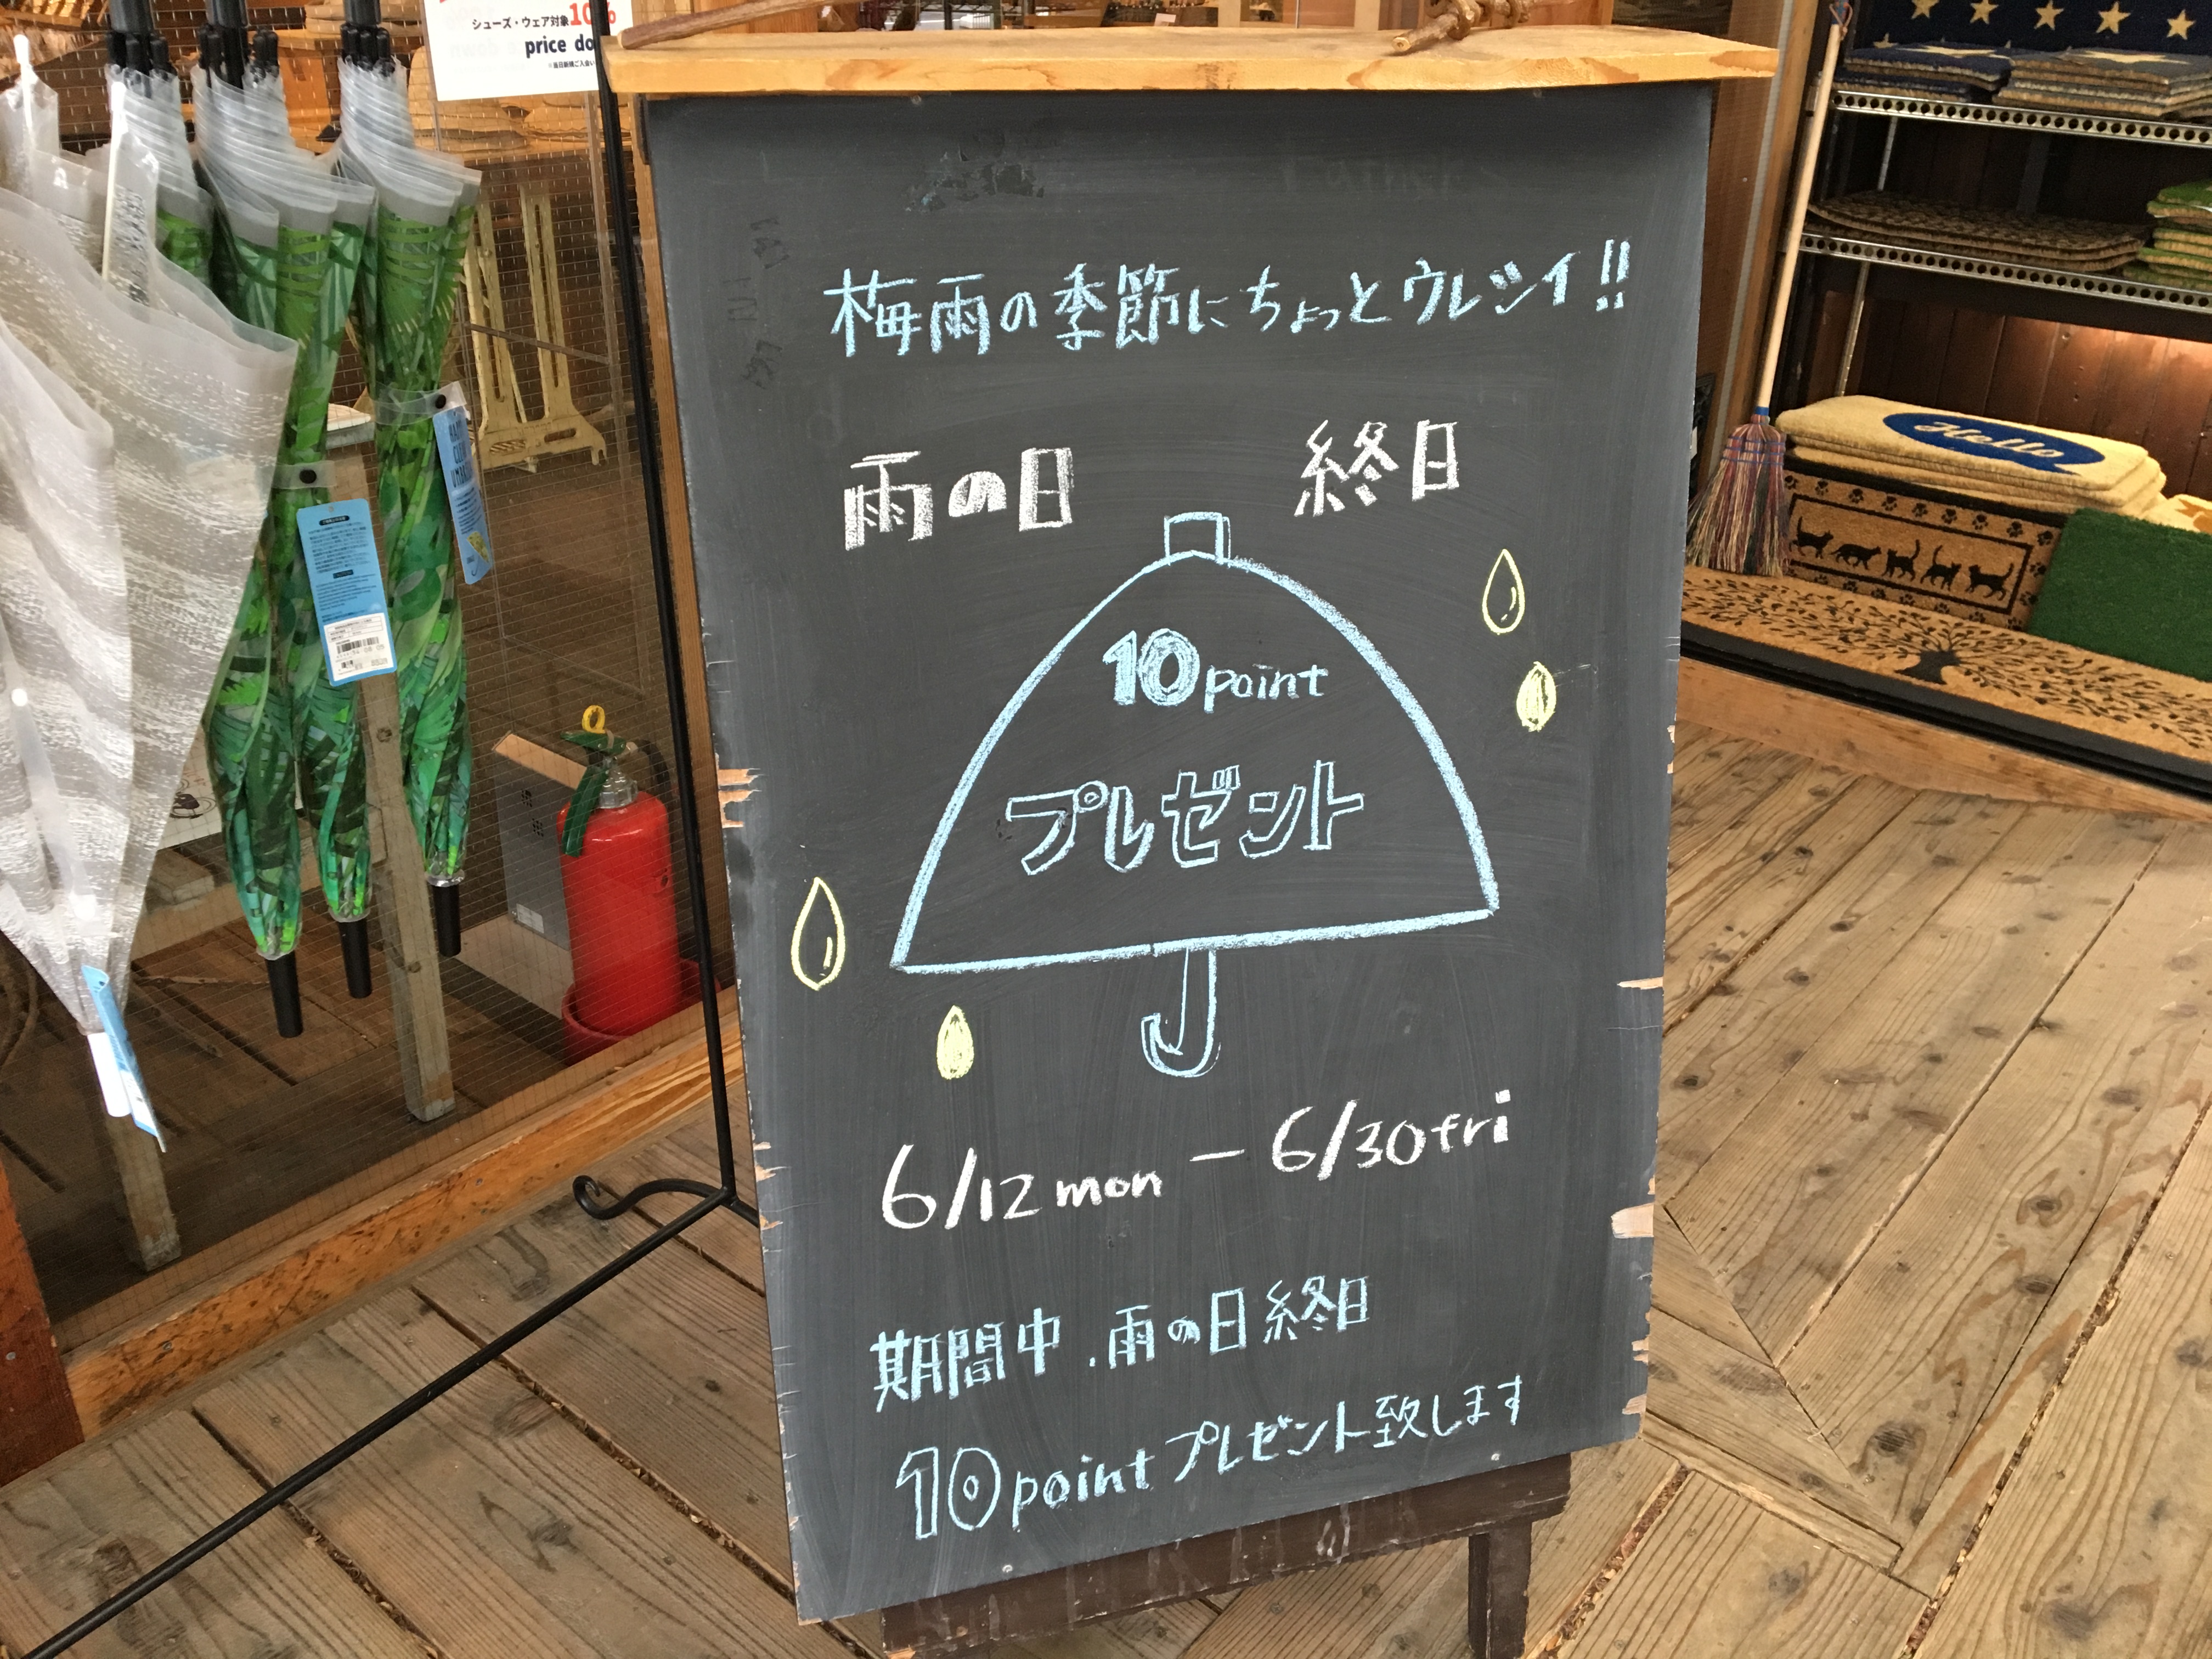 シューズ・ウェア対象10%
price do
梅雨の季節にちょっとウレシイ!!
雨の日 終日
10point
プレゼント
6/12mon － 6/30fri
期間中、雨の日終日
10pointプレゼント致します
Hello